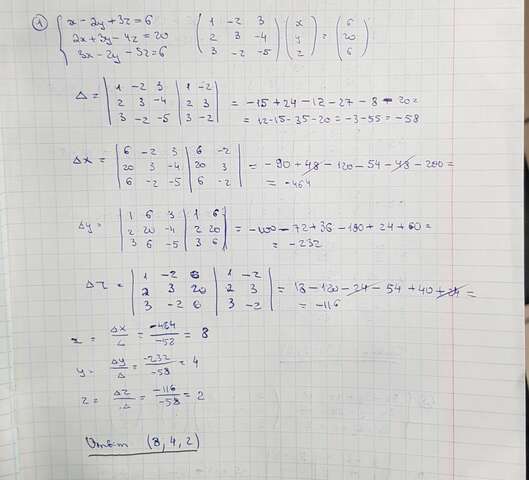 ① { x - 2y + 3z = 6
2x + 3y - 4z = 20
3x - 2y - 5z = 6
( 1 -2 3
2 3 -4
3 -2 -5 ) ( x
y
z ) = ( 6
20
6 )
Δ = | 1 -2 3 | 1 -2 |
| 2 3 -4 | 2 3 |
| 3 -2 -5 | 3 -2 |
= -15 + 24 - 12 - 27 - 8 - 20 =
= 12 - 15 - 35 - 20 = -3 - 55 = -58
Δx = | 6 -2 3 | 6 -2 |
| 20 3 -4 | 20 3 |
| 6 -2 -5 | 6 -2 |
= -90 + 48 - 120 - 54 - 48 - 200 =
= -464
Δy = | 1 6 3 | 1 6 |
| 2 20 -4 | 2 20 |
| 3 6 -5 | 3 6 |
= -100 - 72 + 36 - 180 + 24 + 60 =
= -232
Δz = | 1 -2 6 | 1 -2 |
| 2 3 20 | 2 3 |
| 3 -2 6 | 3 -2 |
= 18 - 120 - 24 - 54 + 40 + 24 =
= -116
x = Δx/Δ = -464/-58 = 8
y = Δy/Δ = -232/-58 = 4
z = Δz/Δ = -116/-58 = 2
Ответ (8, 4, 2)